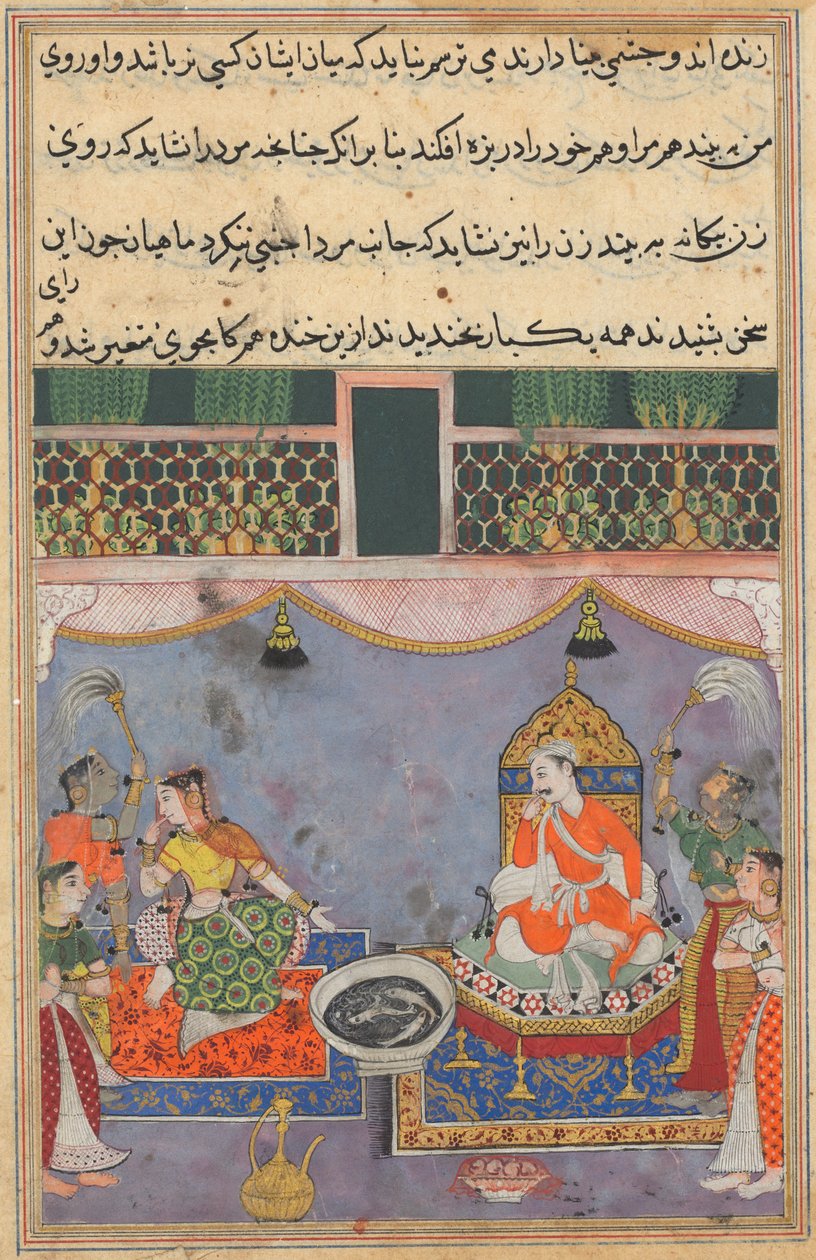 زنده اند و چشمی بینا دارند می ترسم نباید که میان ایشان کسی نر باشد و او روی
من به بیند هم مرا و هم خود را در بزه افکند بنا بر انک چنانچه مرد را نشاید که روی
زن بیکانه به بیند زن را نیز نشاید که جانب مرد اجنبی ننکرد ماهیان چون این
سخن بشنیدند همه یکبار بخندیدند ازین خنده هم کامجوی متغیر شد و هم
رای